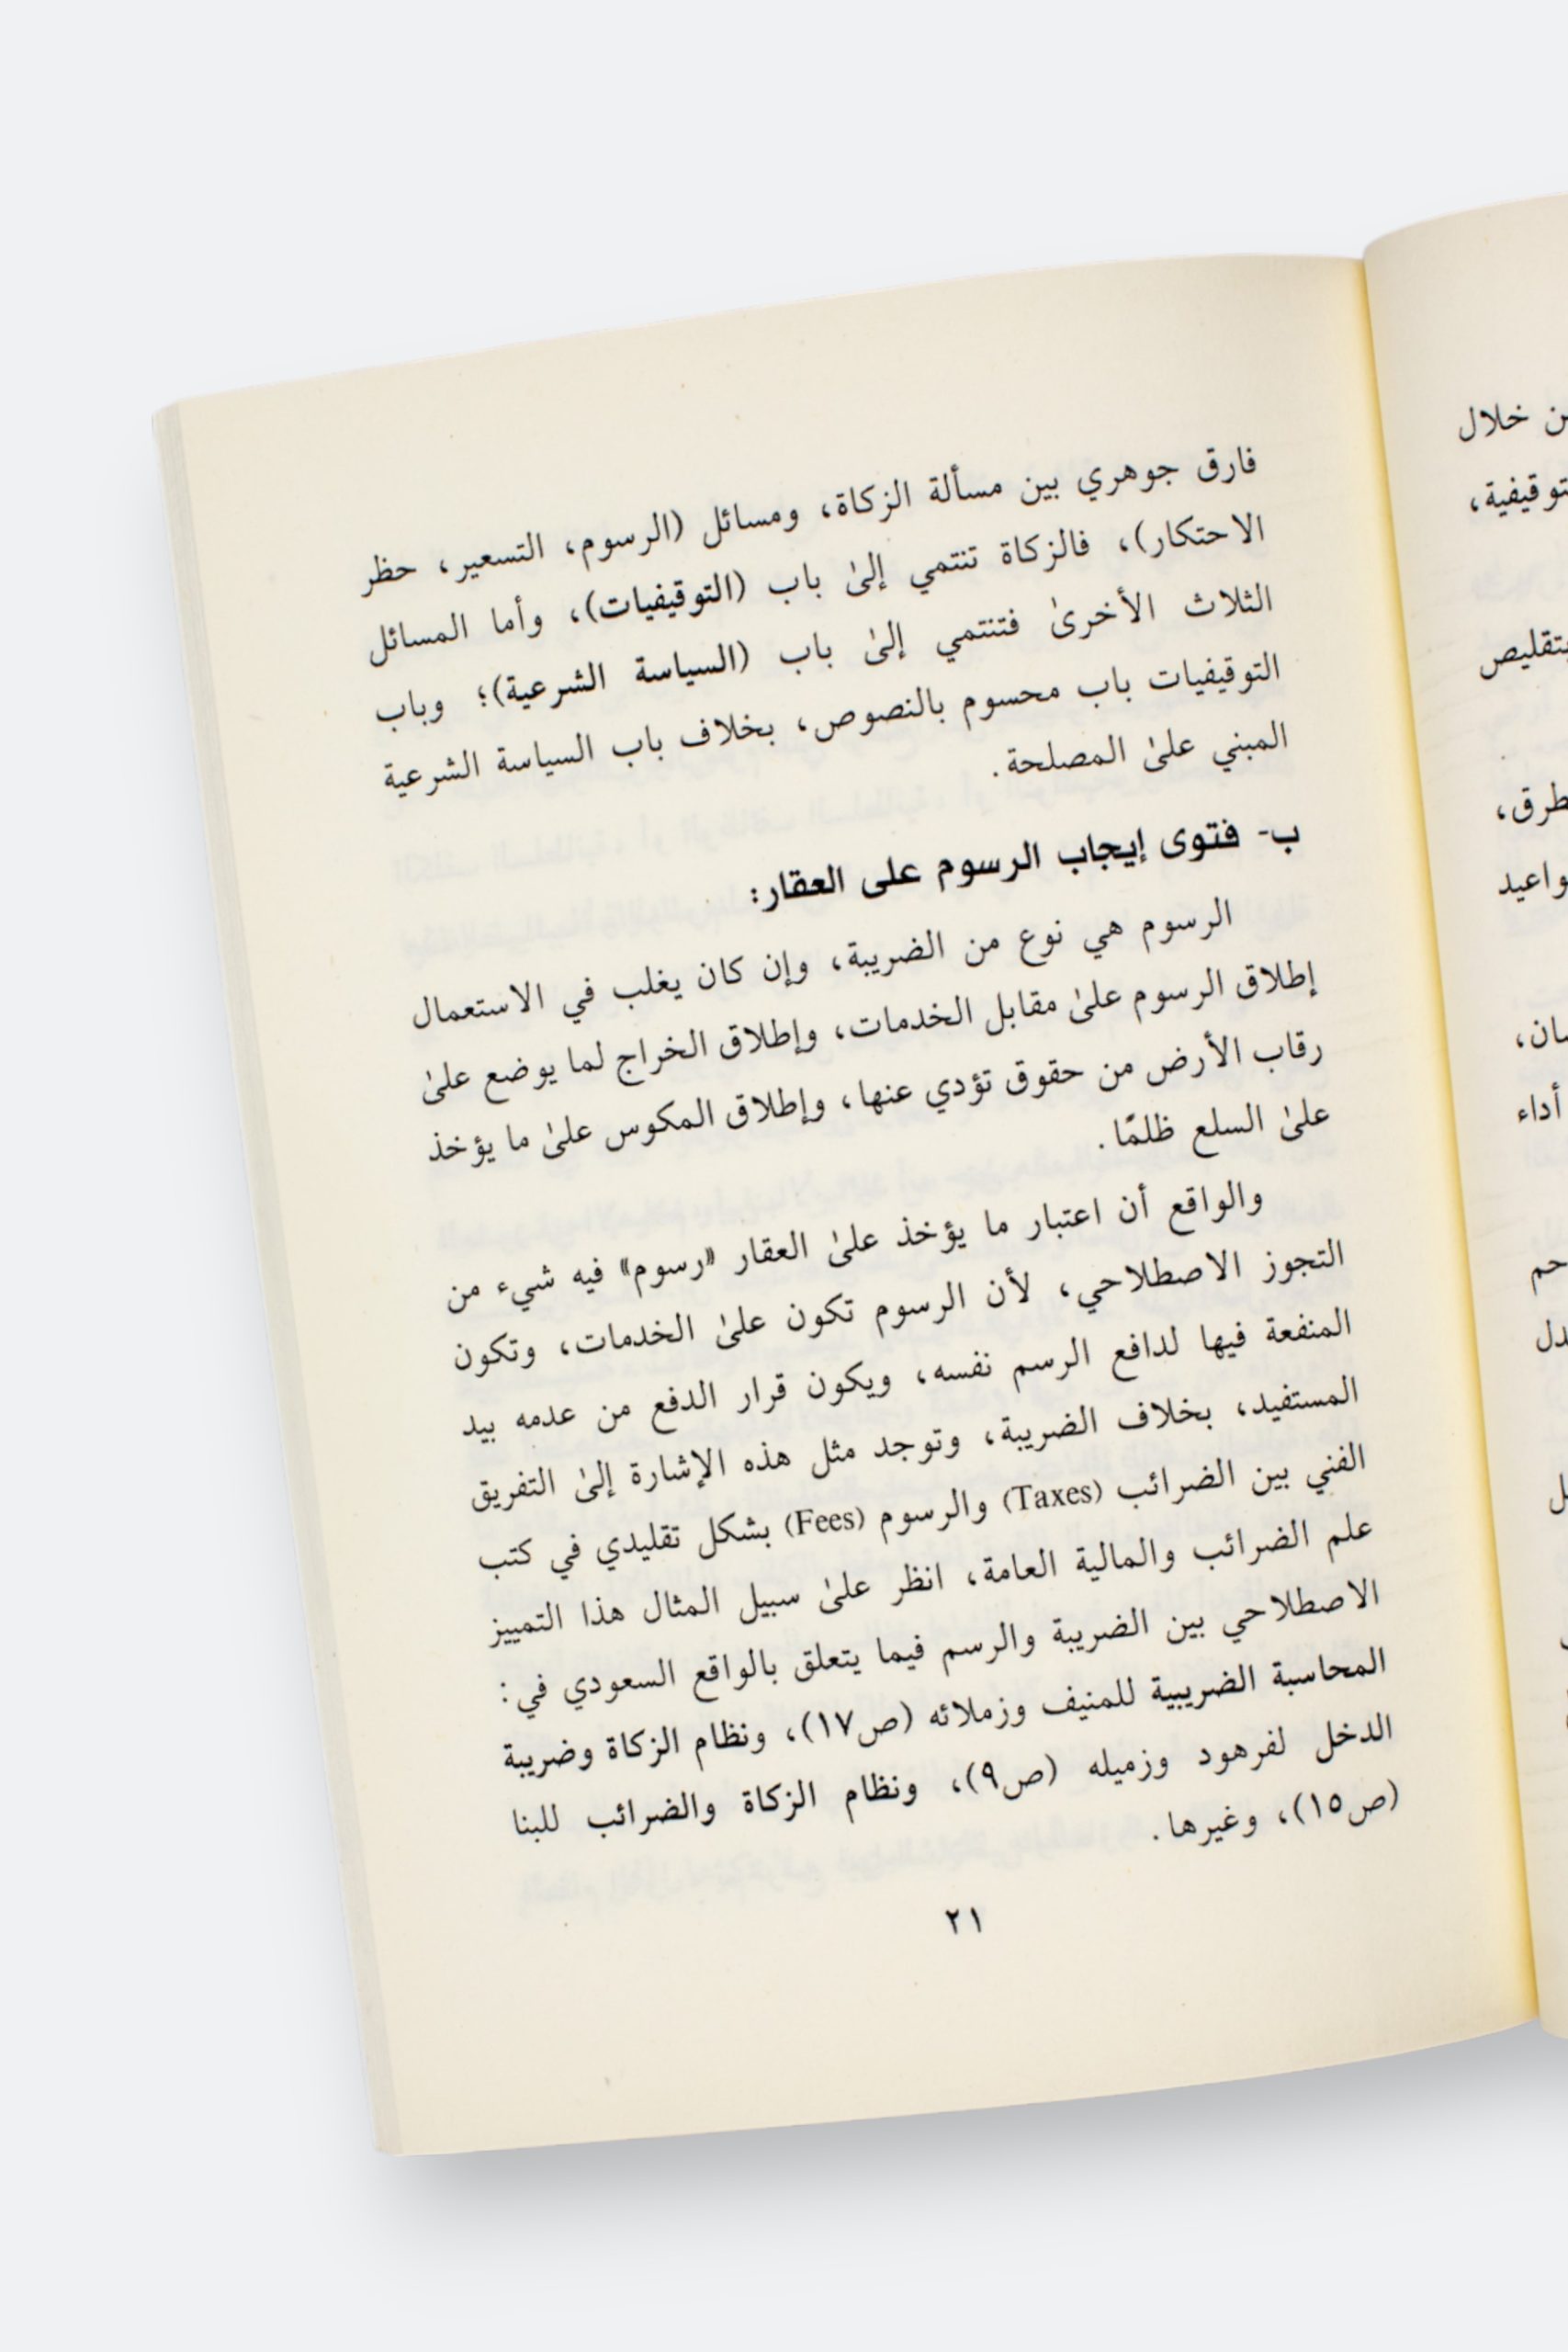 فارق جوهري بين مسألة الزكاة، ومسائل (الرسوم، التسعير، حظر
الاحتكار)، فالزكاة تنتمي إلىٰ باب (التوقيفيات)، وأما المسائل
الثلاث الأخرىٰ فتنتمي إلىٰ باب (السياسة الشرعية)؛ وباب
التوقيفيات باب محسوم بالنصوص، بخلاف باب السياسة الشرعية
المبني علىٰ المصلحة.
ب- فتوى إيجاب الرسوم على العقار:
الرسوم هي نوع من الضريبة، وإن كان يغلب في الاستعمال
إطلاق الرسوم علىٰ مقابل الخدمات، وإطلاق الخراج لما يوضع علىٰ
رقاب الأرض من حقوق تؤدي عنها، وإطلاق المكوس علىٰ ما يؤخذ
علىٰ السلع ظلمًا.
والواقع أن اعتبار ما يؤخذ علىٰ العقار «رسوم» فيه شيء من
التجوز الاصطلاحي، لأن الرسوم تكون علىٰ الخدمات، وتكون
المنفعة فيها لدافع الرسم نفسه، ويكون قرار الدفع من عدمه بيد
المستفيد، بخلاف الضريبة، وتوجد مثل هذه الإشارة إلىٰ التفريق
الفني بين الضرائب (Taxes) والرسوم (Fees) بشكل تقليدي في كتب
علم الضرائب والمالية العامة، انظر علىٰ سبيل المثال هذا التمييز
الاصطلاحي بين الضريبة والرسم فيما يتعلق بالواقع السعودي في:
المحاسبة الضريبية للمنيف وزملائه (ص١٧)، ونظام الزكاة وضريبة
الدخل لفرهود وزميله (ص٩)، ونظام الزكاة والضرائب للبنا
(ص١٥)، وغيرها.
٢١
خلال
طرق،
أداء